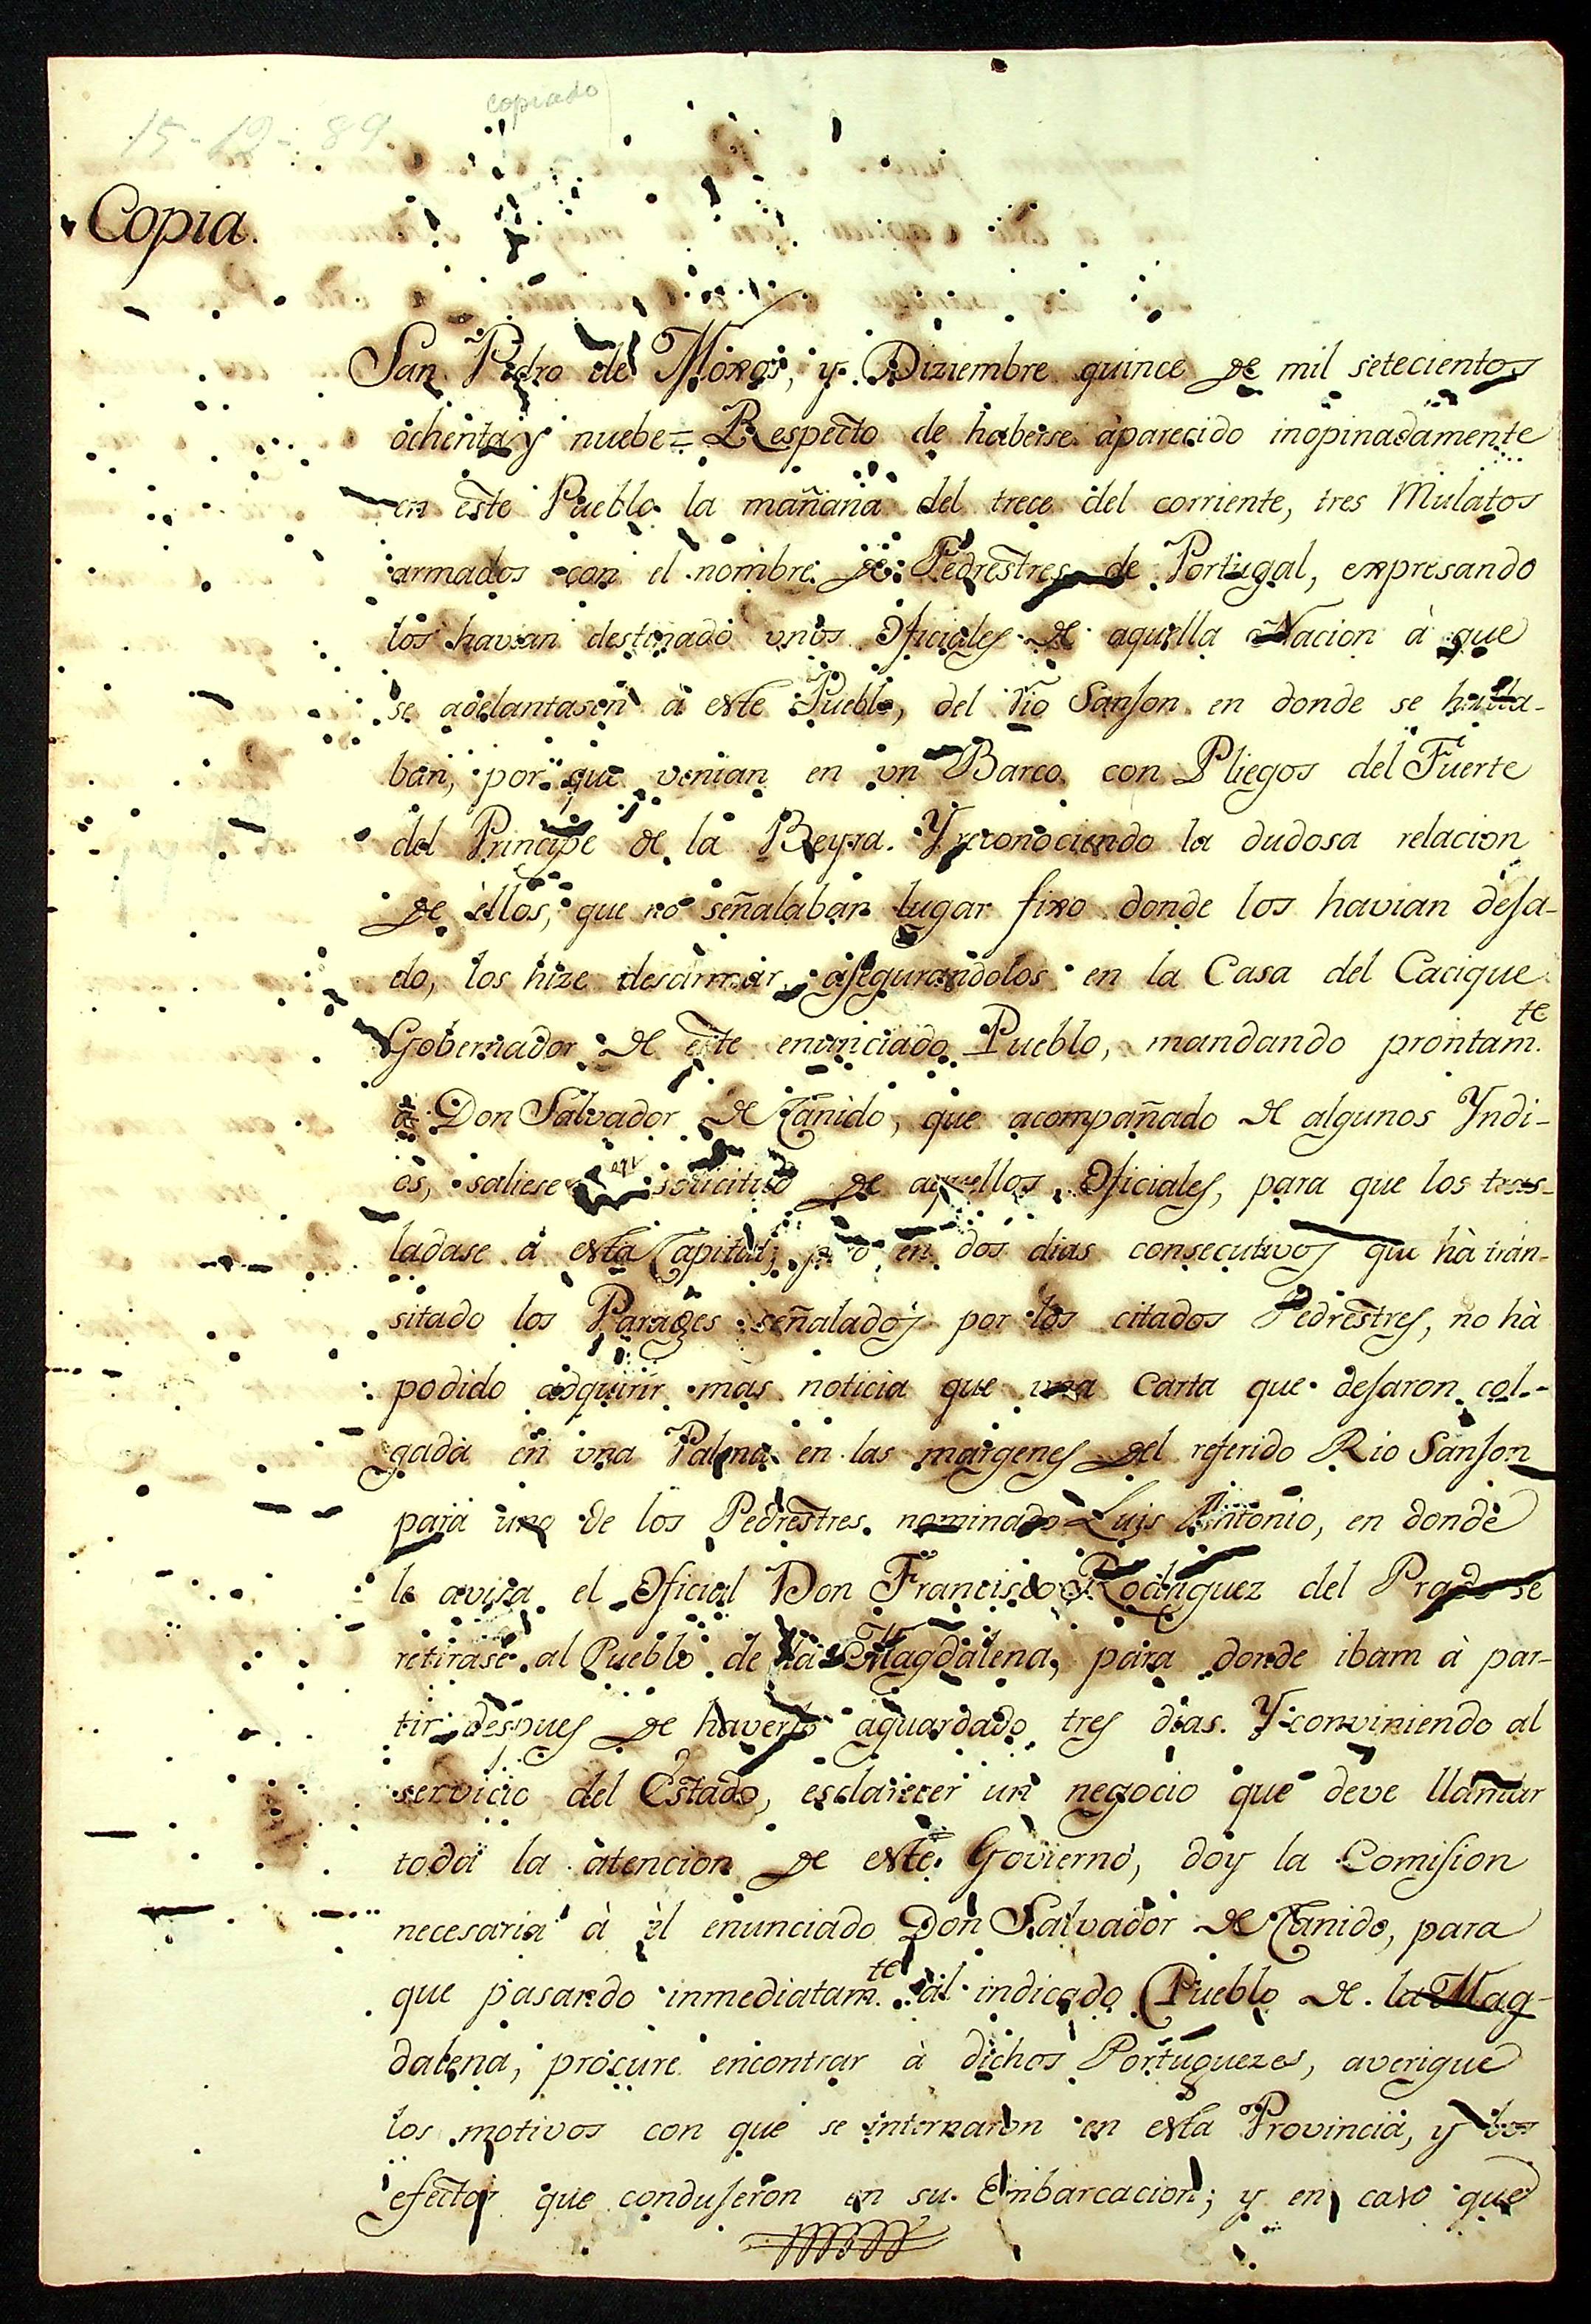 copiado
15-12-89
Copia.
San Pedro de Moxos, y Diziembre quince de mil setecientos
ochenta y nuebe = Respecto de haberse aparecido inopinadamente
en este Pueblo la mañana del trece del corriente, tres Mulatos
armados con el nombre de Pedrestres de Portugal, expresando
los havian destinado unos Oficiales de aquella Nacion à que
se adelantasen à este Pueblo, del rio Sanson en donde se halla-
ban, por que venian en un Barco con Pliegos del Fuerte
del Principe de la Beyra. Y reconociendo la dudosa relacion
de èllos, que no señalaban lugar fixo donde los havian desa-
do, los hize desarmar, asegurandolos en la Casa del Cacique
Gobernador de este enunciado Pueblo, mandando prontam.te
à Don Salvador de Canido, que acompañado de algunos Yndi-
os, saliese solicitud de aquellos Oficiales, para que los tras-
ladase à esta Capital; pero en dos dias consecutivos que hà trán-
sitado los Parages señalados por los citados Pedrestres, no hà
podido adquirir mas noticia que una Carta que desaron col-
gada en una Palma en las margenes del referido Rio Sanson
para uno de los Pedrestres nominado Luis Antonio, en donde
le avisa el Oficial Don Francisco Rodriguez del Prado se
retirase al Pueblo de la Magdalena, para donde ibam à par-
tir despues de haverlo aguardado tres dias. Y conviniendo al
servicio del Estado, esclarecer un negocio que deve llamar
toda la atencion de este Govierno, doy la Comision
necesaria à èl enunciado Don Salvador de Canido, para
que pasando inmediatam.te al indicado Pueblo de la Mag-
dalena, procure encontrar à dichos Portuguezes, averigue
los motivos con que se internaron en esta Provincia, y los
efectos que condujeron en su Embarcacion; y en caso que